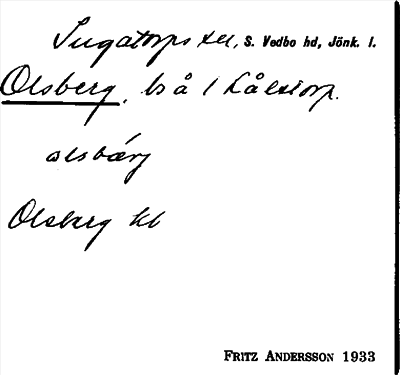 Ingatorps sn, S. Vedbo hd, Jönk. l.
Olsberg, bs å
olsbärj
Olsberg kb
FRITZ ANDERSSON 1933